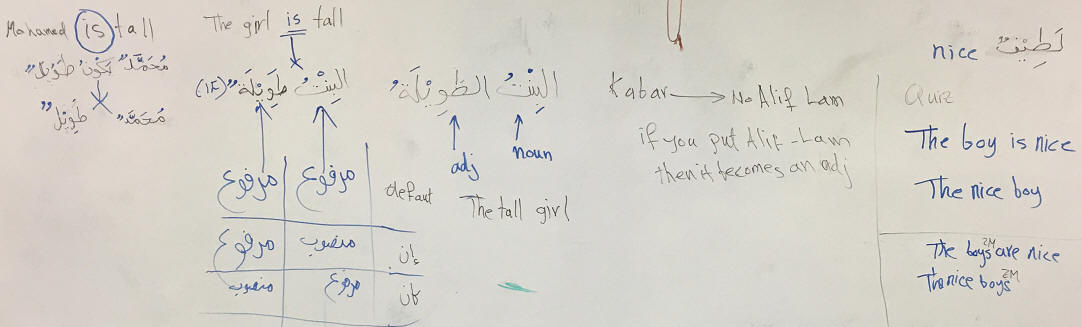 Mohamed is tall
مُحَمَّدٌ يَكُونُ طَوِيلٌ
مُحَمَّدٌ طَوِيْلٌ
The girl is tall
البِنْتُ طَوِيْلَةٌ
مرفوع مرفوع defaut
منصوب مرفوع إن
مرفوع منصوب كان
البِنْتُ الطَّوِيْلَةُ
adj noun
The tall girl
Kabar → No Alif Lam
if you put Alif-Lam
then it becomes an adj
nice لَطِيْفٌ
Quiz
The boy is nice
The nice boy
The boys 2M are nice
The nice boys 2M